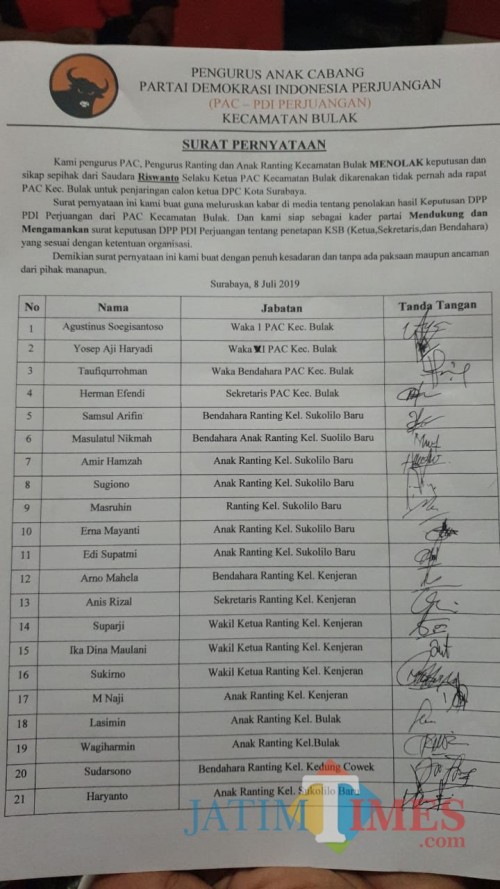 PENGURUS ANAK CABANG
PARTAI DEMOKRASI INDONESIA PERJUANGAN
(PAC – PDI PERJUANGAN)
KECAMATAN BULAK
SURAT PERNYATAAN
Kami pengurus PAC, Pengurus Ranting dan Anak Ranting Kecamatan Bulak MENOLAK keputusan dan
sikap sepihak dari Saudara Riswanto Selaku Ketua PAC Kecamatan Bulak dikarenakan tidak pernah ada rapat
PAC Kec. Bulak untuk penjaringan calon ketua DPC Kota Surabaya.
Surat pernyataan ini kami buat guna meluruskan kabar di media tentang penolakan hasil Keputusan DPP
PDI Perjuangan dari PAC Kecamatan Bulak. Dan kami siap sebagai kader partai Mendukung dan
Mengamankan surat keputusan DPP PDI Perjuangan tentang penetapan KSB (Ketua,Sekretaris,dan Bendahara)
yang sesuai dengan ketentuan organisasi.
Demikian surat pernyataan ini kami buat dengan penuh kesadaran dan tanpa ada paksaan maupun ancaman
dari pihak manapun.
Surabaya, 8 Juli 2019
No Nama Jabatan Tanda Tangan
1 Agustinus Soegisantoso Waka 1 PAC Kec. Bulak
2 Yosep Aji Haryadi Waka PAC Kec. Bulak
3 Taufiqurrohman Waka Bendahara PAC Kec. Bulak
4 Herman Efendi Sekretaris PAC Kec. Bulak
5 Samsul Arifin Bendahara Ranting Kel. Sukolilo Baru
6 Masulatul Nikmah Bendahara Anak Ranting Kel. Suolilo Baru
7 Amir Hamzah Anak Ranting Kel. Sukolilo Baru
8 Sugiono Anak Ranting Kel. Sukolilo Baru
9 Masruhin Ranting Kel. Sukolilo Baru
10 Erna Mayanti Anak Ranting Kel. Sukolilo Baru
11 Edi Supatmi Anak Ranting Kel. Sukolilo Baru
12 Arno Mahela Bendahara Ranting Kel. Kenjeran
13 Anis Rizal Sekretaris Ranting Kel. Kenjeran
14 Suparji Wakil Ketua Ranting Kel. Kenjeran
15 Ika Dina Maulani Wakil Ketua Ranting Kel. Kenjeran
16 Sukirno Wakil Ketua Ranting Kel. Kenjeran
17 M Naji Anak Ranting Kel. Kenjeran
18 Lasimin Anak Ranting Kel. Bulak
19 Wagiharmin Anak Ranting Kel.Bulak
20 Sudarsono Bendahara Ranting Kel. Kedung Cowek
21 Haryanto Anak Ranting Kel. Sukolilo Baru
JATIMTIMES
.com